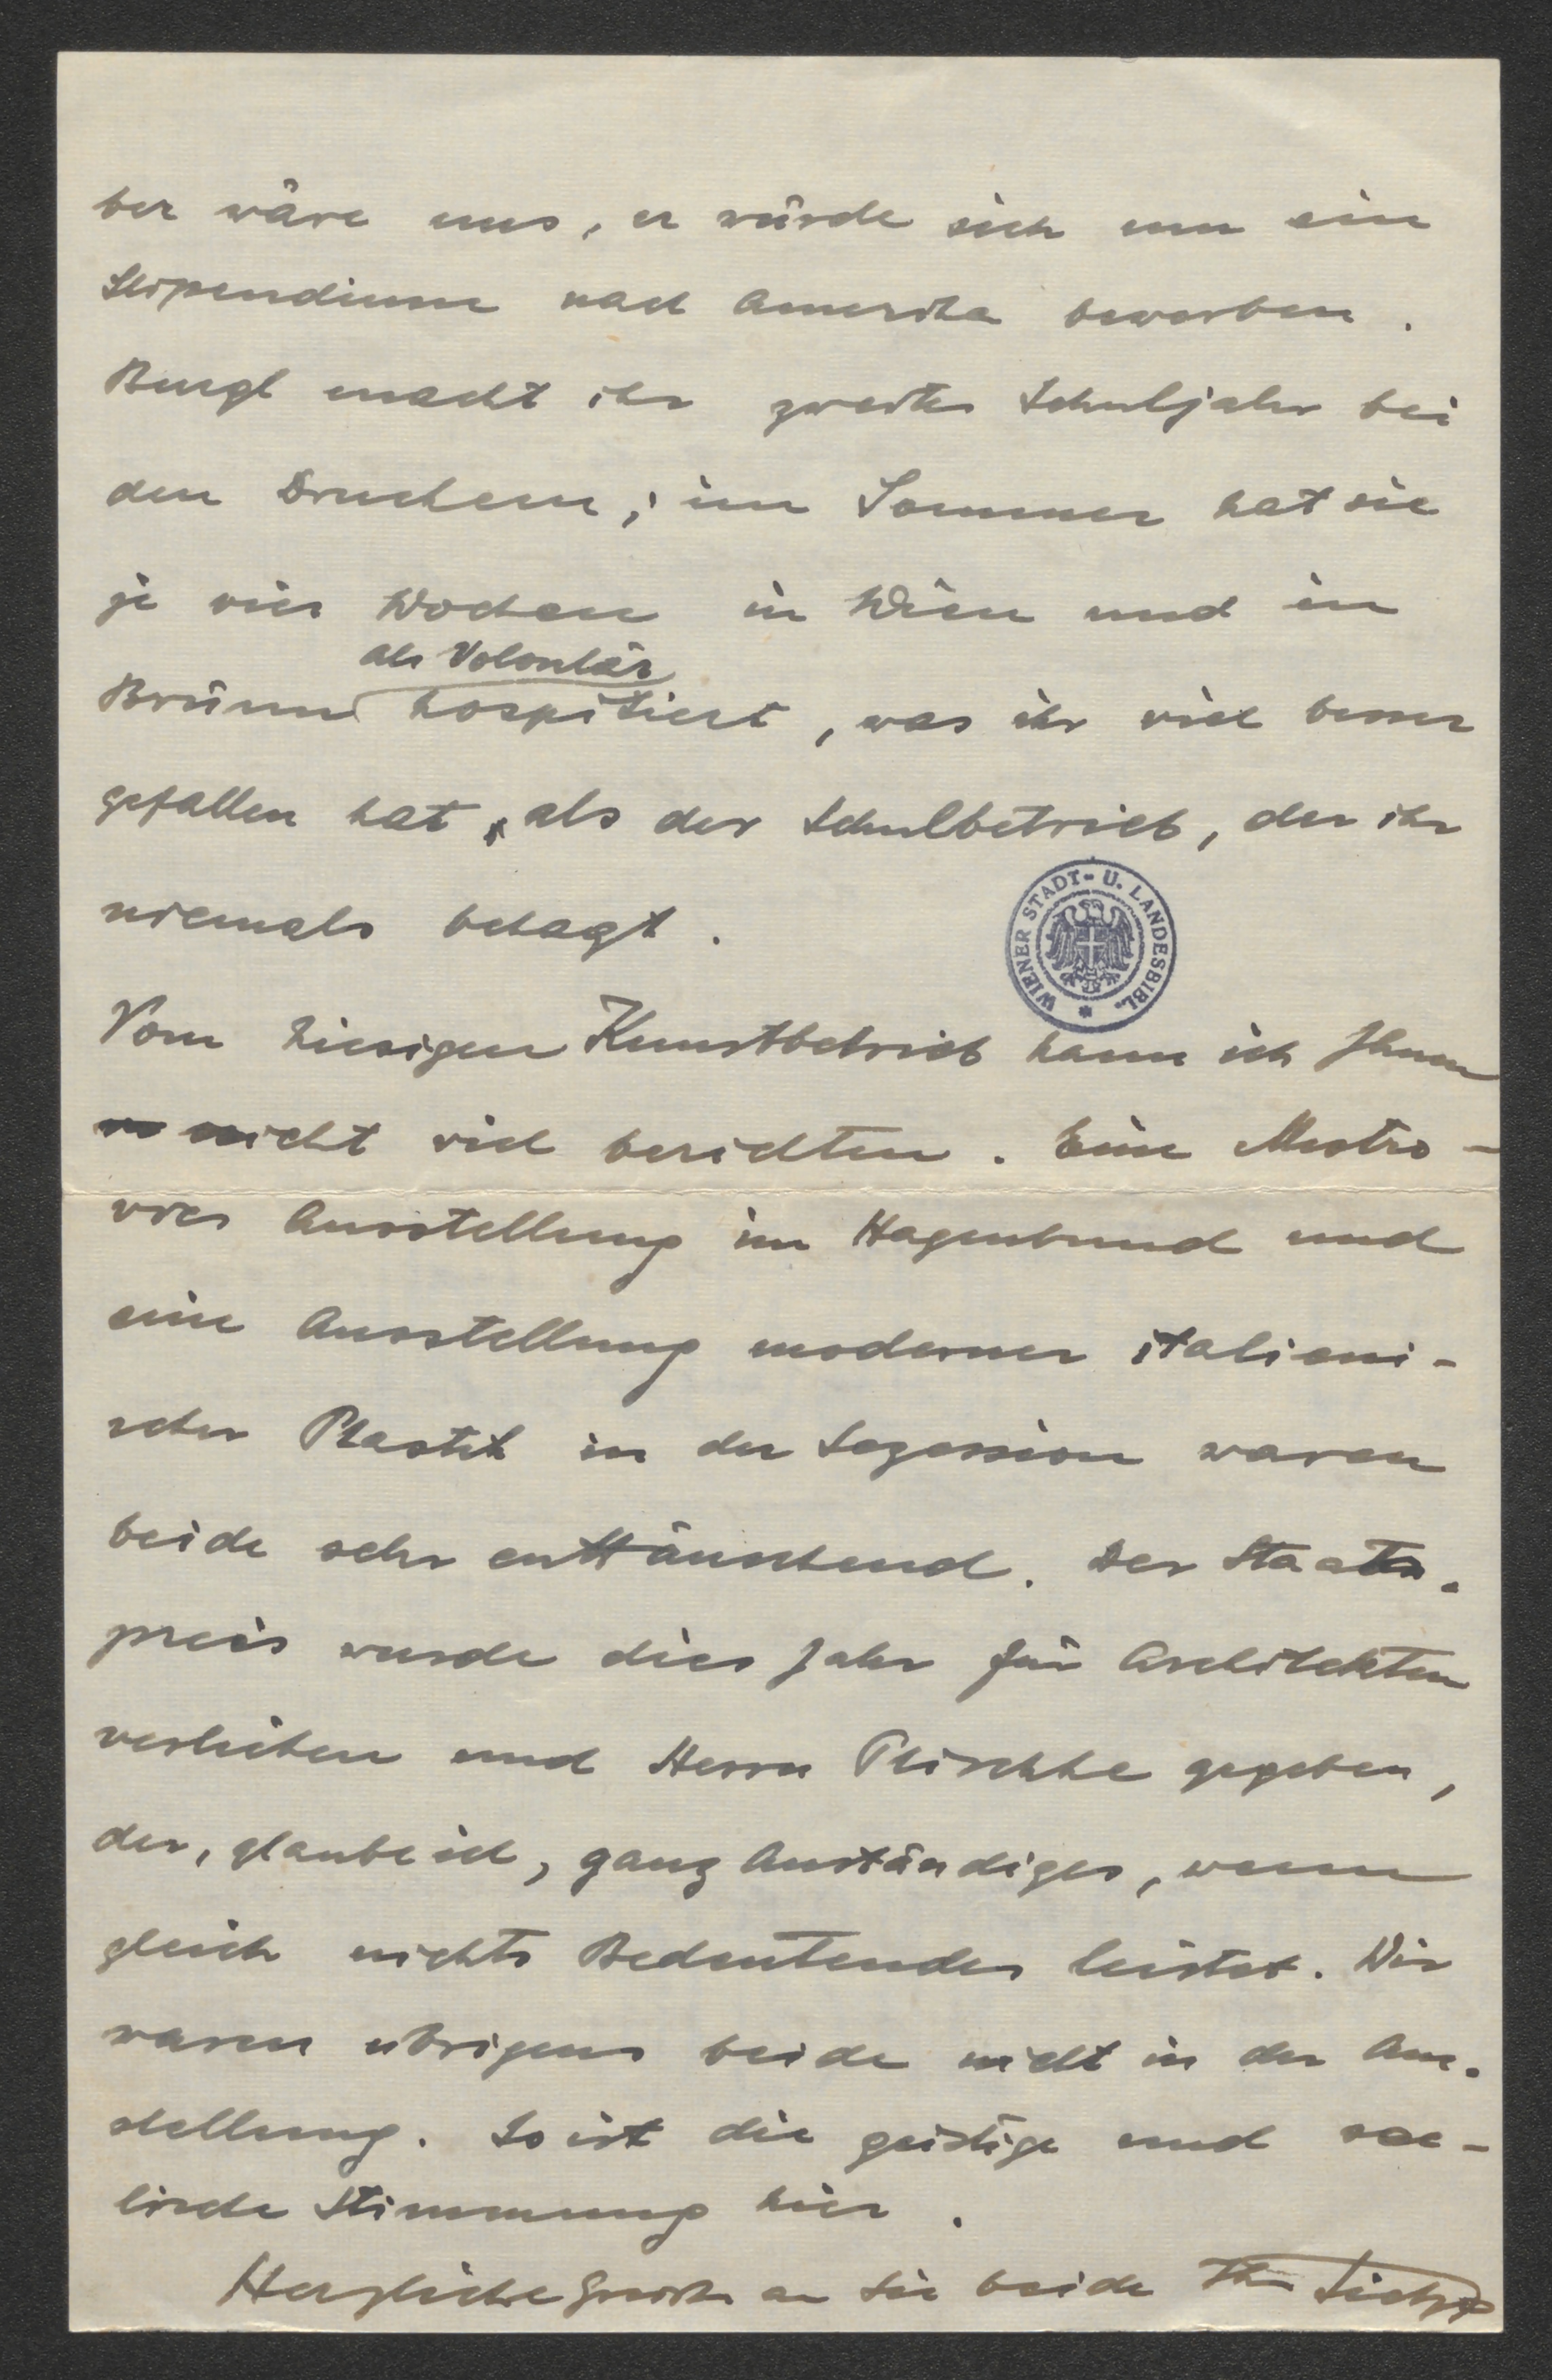 ber wäre uns, er würde sich um ein
Stipendium nach Amerika bewerben.
Burgl macht ihr zweites Schuljahr bei
den Druckern; im Sommer hat sie
je vier Wochen in Wien und in
als Volontär
Brünn hospitiert, was ihr viel besser
gefallen hat, als der Schulbetrieb, der ihr
niemals behagt.
WIENER STADT- U. LANDESBIBL.
Vom hiesigen Kunstbetrieb kann ich Ihnen
nicht viel berichten. Eine Mestro-
vics Ausstellung im Hagenbund und
eine Ausstellung moderner italieni-
scher Plastik in der Sezession waren
beide sehr enttäuschend. Der Staats-
preis wurde dies Jahr für Architekten
verliehen und Herrn Plischke gegeben,
der, glaube ich, ganz Anständiges, wenn
gleich nichts Bedeutendes leistet. Wir
waren übrigens beide nicht in der Aus-
stellung. So ist die geistige und see-
lische Stimmung hier.
Herzliche Grüsse an Sie beide Ihr